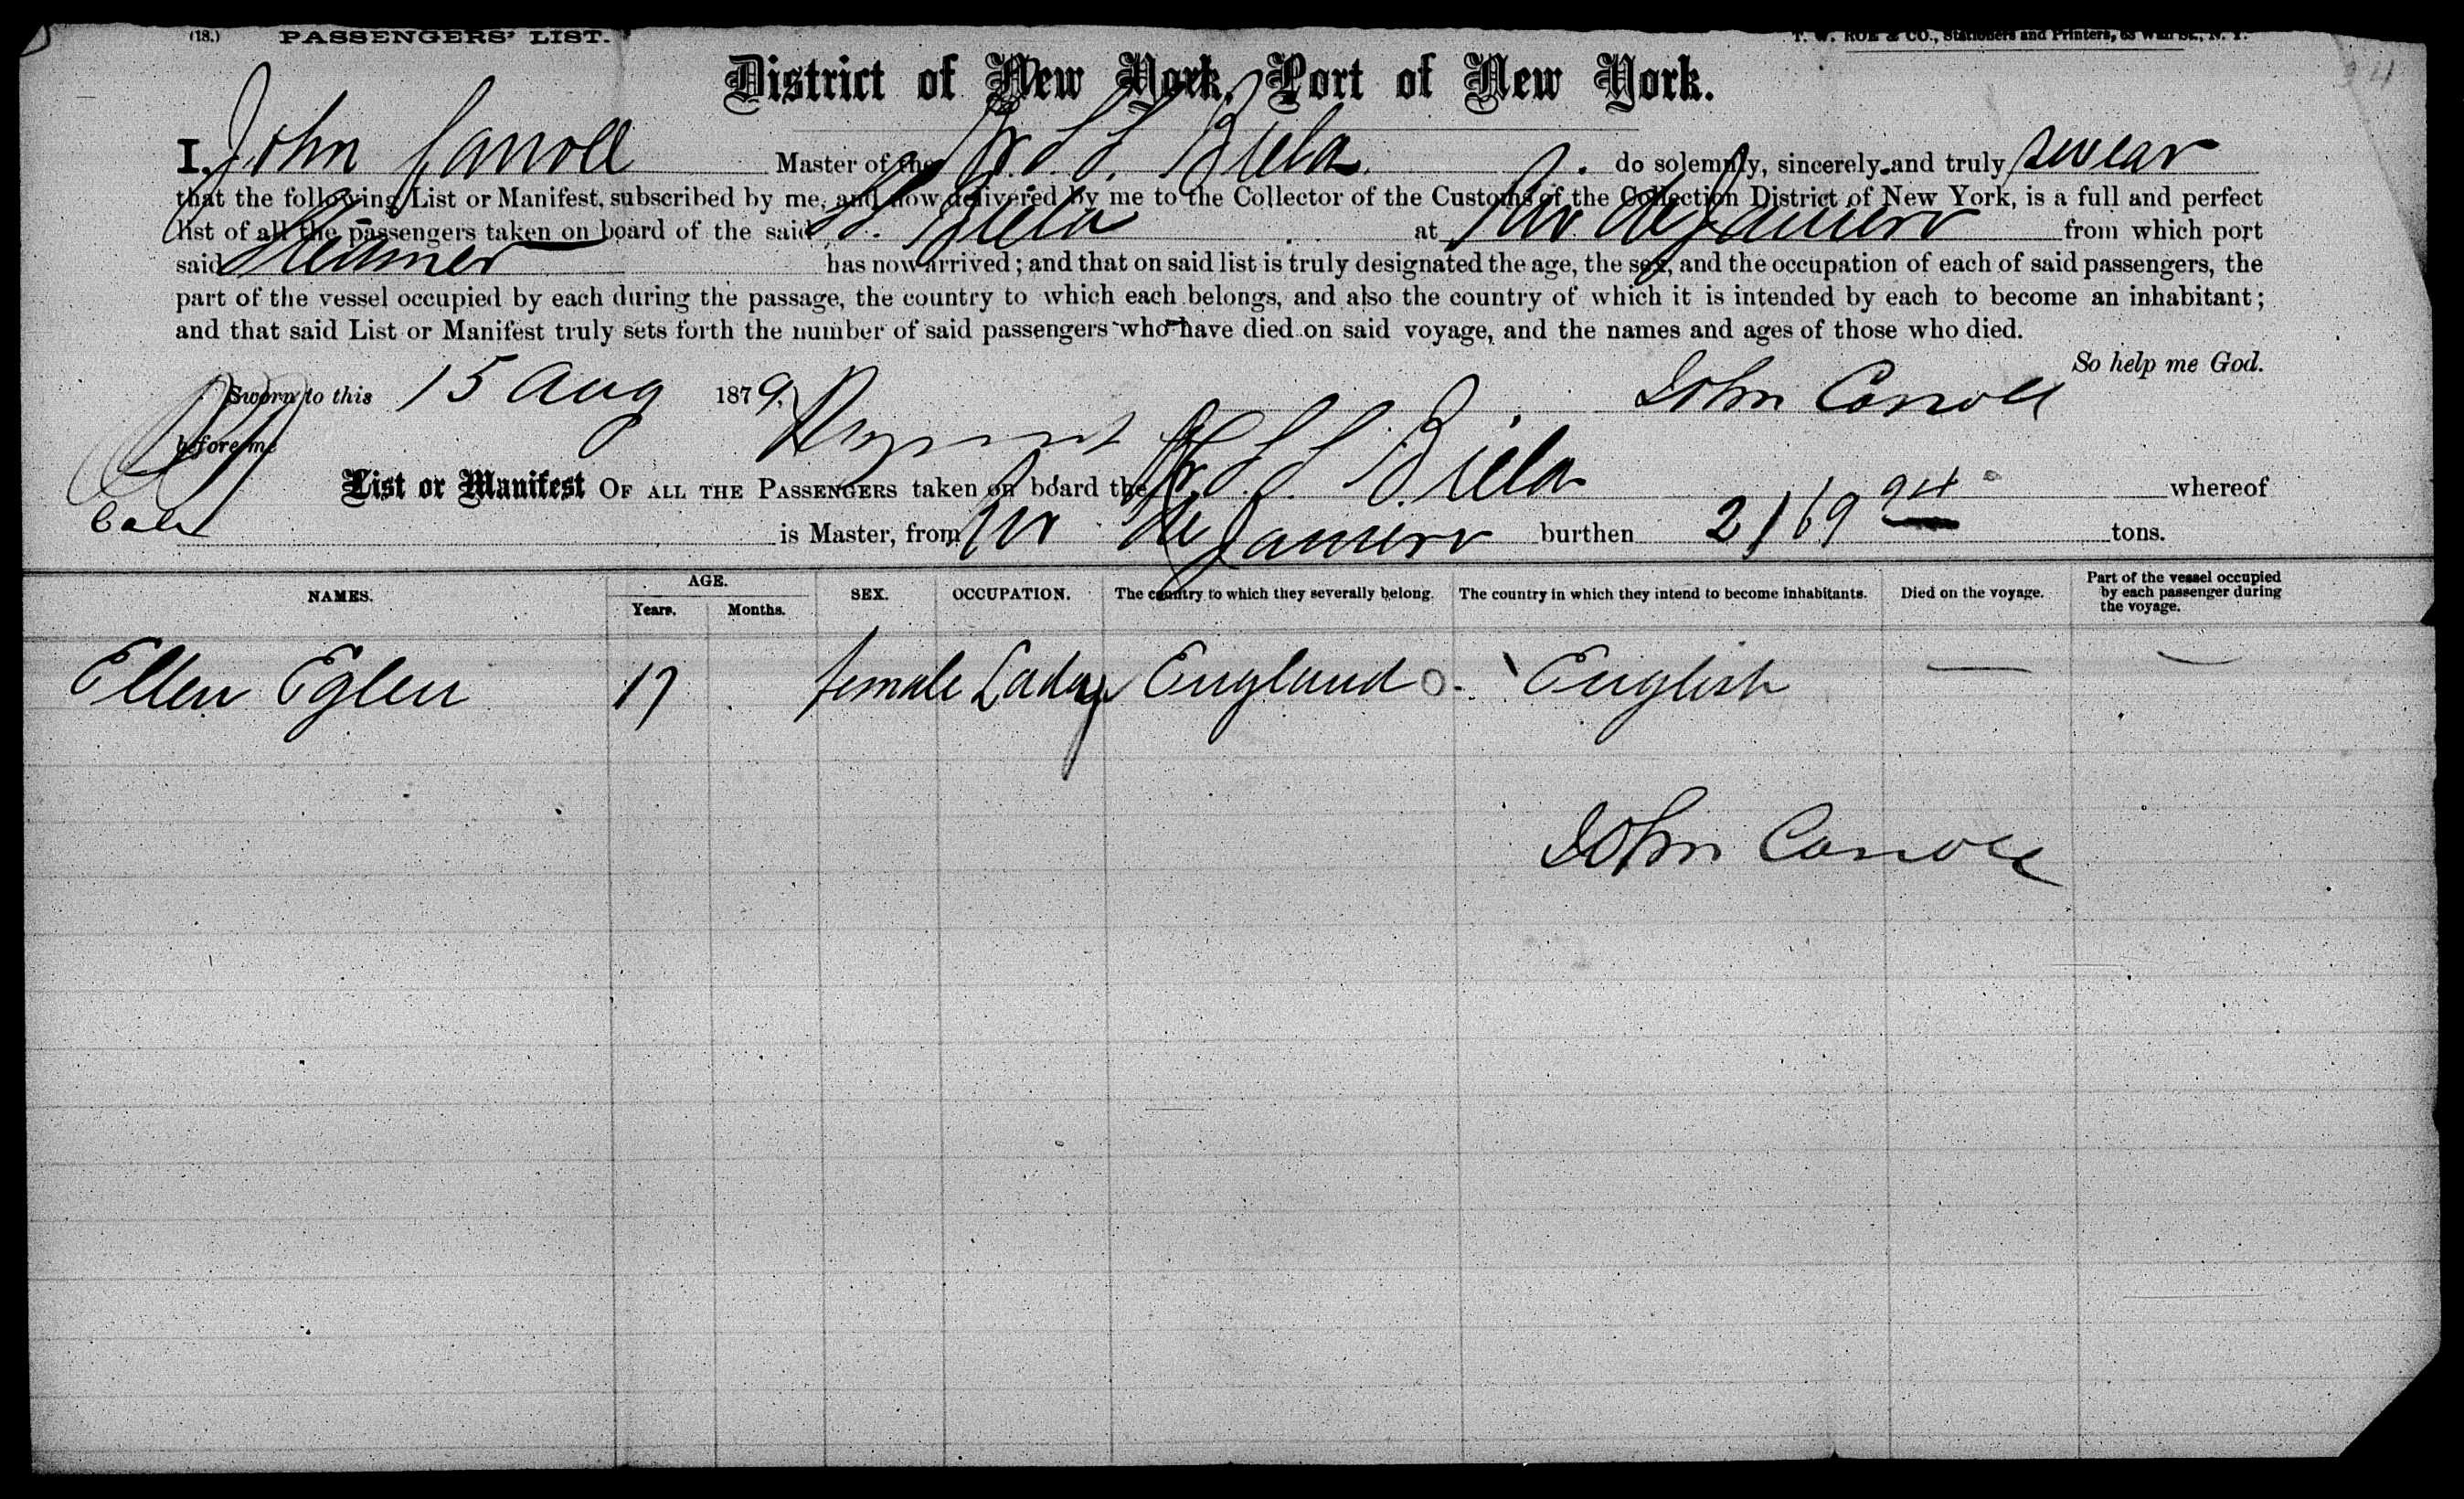 (18.) PASSENGERS' LIST. T. W. ROE & CO., Stationers and Printers, 63 Wall St., N. Y.
District of New York, Port of New York.
I, John Carroll Master of the Br. S. S. Biela do solemnly, sincerely and truly swear
that the following List or Manifest, subscribed by me, and now delivered by me to the Collector of the Customs of the Collection District of New York, is a full and perfect
list of all the passengers taken on board of the said S. Biela at Rio de Janeiro from which port
said Steamer has now arrived; and that on said list is truly designated the age, the sex, and the occupation of each of said passengers, the
part of the vessel occupied by each during the passage, the country to which each belongs, and also the country of which it is intended by each to become an inhabitant;
and that said List or Manifest truly sets forth the number of said passengers who have died on said voyage, and the names and ages of those who died.
So help me God.
Sworn to this 15 Aug 1879, John Carroll
before me
List or Manifest OF ALL THE PASSENGERS taken on board the Br. S. S. Biela whereof
is Master, from Rio de Janeiro burthen 2169 94 tons.
NAMES. AGE. Years. Months. SEX. OCCUPATION. The country to which they severally belong. The country in which they intend to become inhabitants. Died on the voyage. Part of the vessel occupied by each passenger during the voyage.
Ellen Eglen 17 female Lady England English — —
John Carroll